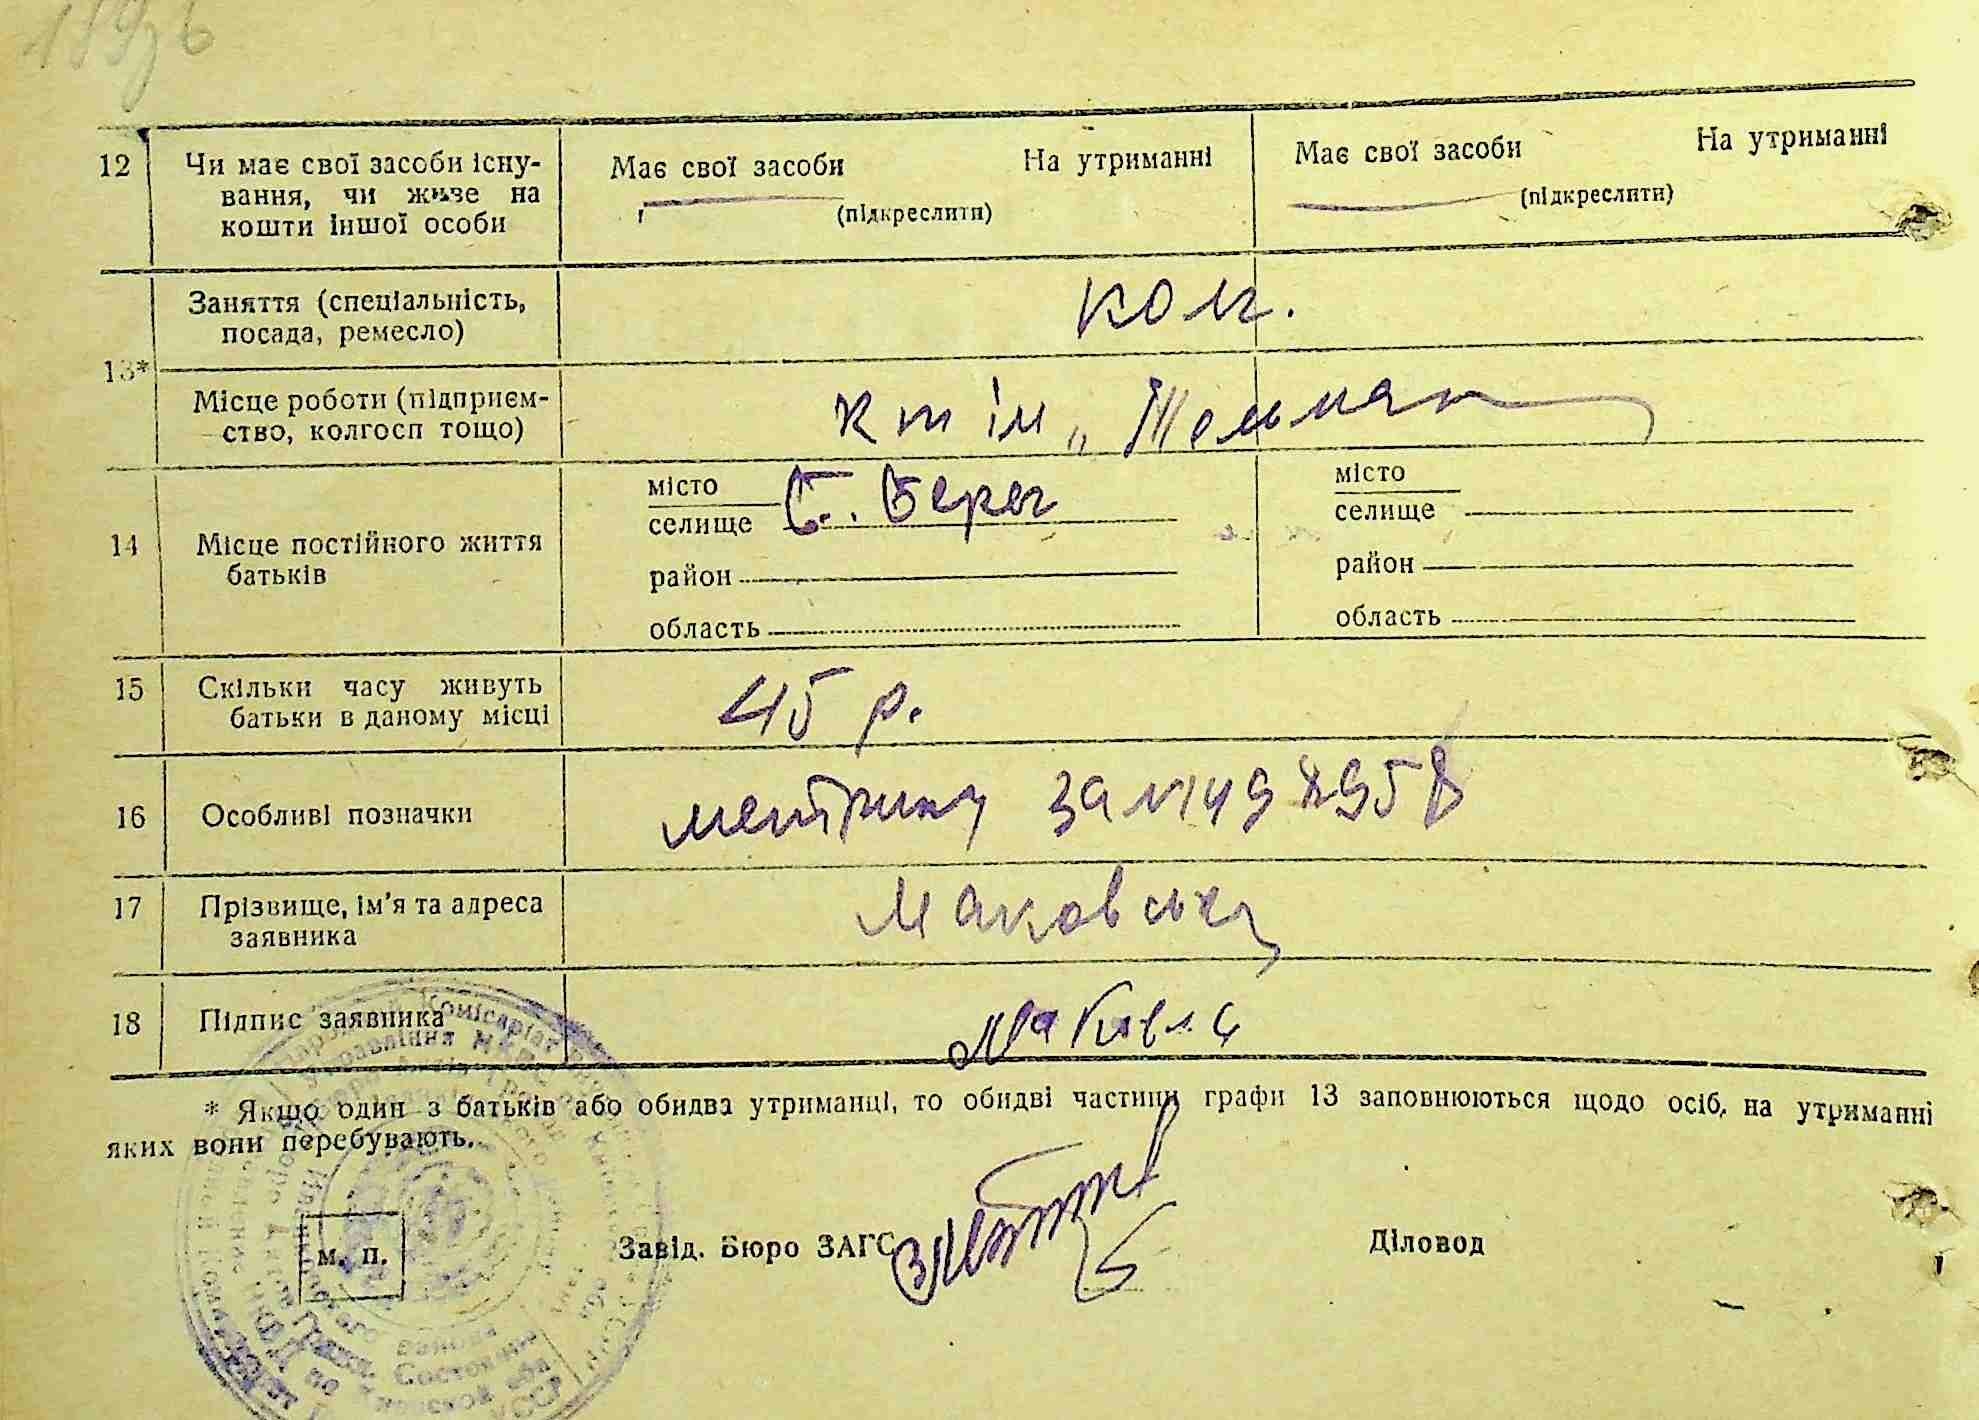 12 Чи має свої засоби існу-
вання, чи живе на
кошти іншої особи
Має свої засоби На утриманні
(підкреслити)
Має свої засоби На утриманні
(підкреслити)
13*
Заняття (спеціальність,
посада, ремесло)
колг.
Місце роботи (підприєм-
ство, колгосп тощо)
к т ім „Тельман
14 Місце постійного життя
батьків
місто
селище С. Берег
район
область
місто
селище
район
область
15 Скільки часу живуть
батьки в даному місці
45 р.
16 Особливі позначки
метрику за №149
17 Прізвище, ім'я та адреса
заявника
Маковська
18 Підпис заявника
* Якщо один з батьків або обидва утриманці, то обидві частини графи 13 заповнюються щодо осіб, на утриманні
яких вони перебувають.
м. п.
Завід. Бюро ЗАГС
Діловод